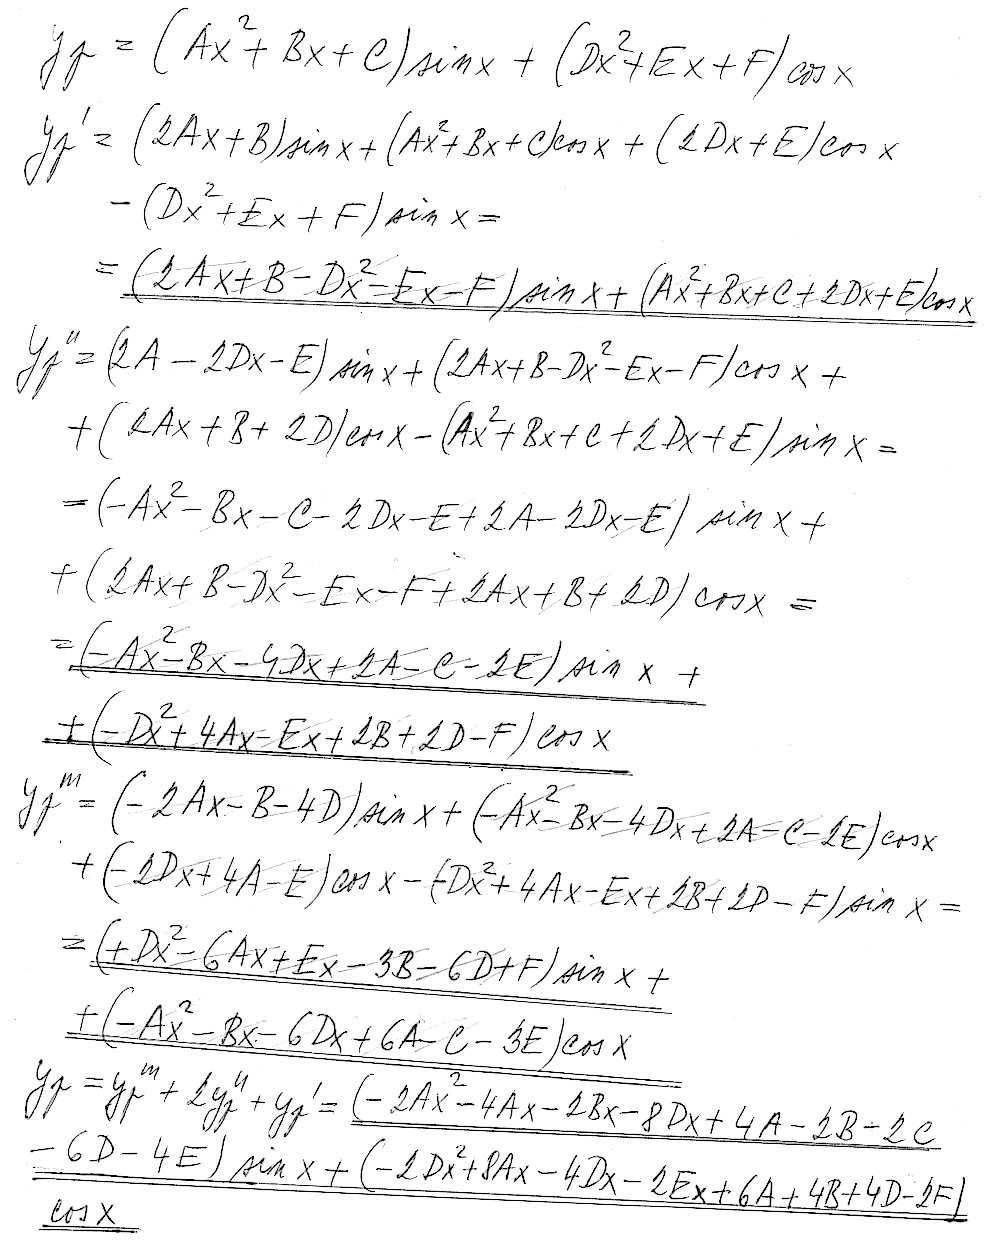 yp = (Ax²+ Bx+C) sin x + (Dx²+Ex+F) cos x
yp' = (2Ax+B) sin x + (Ax²+Bx+C) cos x + (2Dx+E) cos x
- (Dx²+Ex+F) sin x =
= (2Ax+B-Dx²-Ex-F) sin x + (Ax²+Bx+C+2Dx+E) cos x
yp'' = (2A-2Dx-E) sin x + (2Ax+B-Dx²-Ex-F) cos x +
+ (2Ax+B+2D) cos x - (Ax²+Bx+C+2Dx+E) sin x =
= (-Ax²-Bx-C-2Dx-E+2A-2Dx-E) sin x +
+ (2Ax+B-Dx²-Ex-F+2Ax+B+2D) cos x =
= (-Ax²-Bx-4Dx+2A-C-2E) sin x +
+ (-Dx²+4Ax-Ex+2B+2D-F) cos x
yp''' = (-2Ax-B-4D) sin x + (-Ax²-Bx-4Dx+2A-C-2E) cos x
+ (-2Dx+4A-E) cos x - (-Dx²+4Ax-Ex+2B+2D-F) sin x =
= (+Dx²-6Ax+Ex-3B-6D+F) sin x +
+ (-Ax²-Bx-6Dx+6A-C-3E) cos x
yp = yp''' + 2yp'' + yp' = (-2Ax²-4Ax-2Bx-8Dx+4A-2B-2C
-6D-4E) sin x + (-2Dx²+8Ax-4Dx-2Ex+6A+4B+4D-2F)
cos x